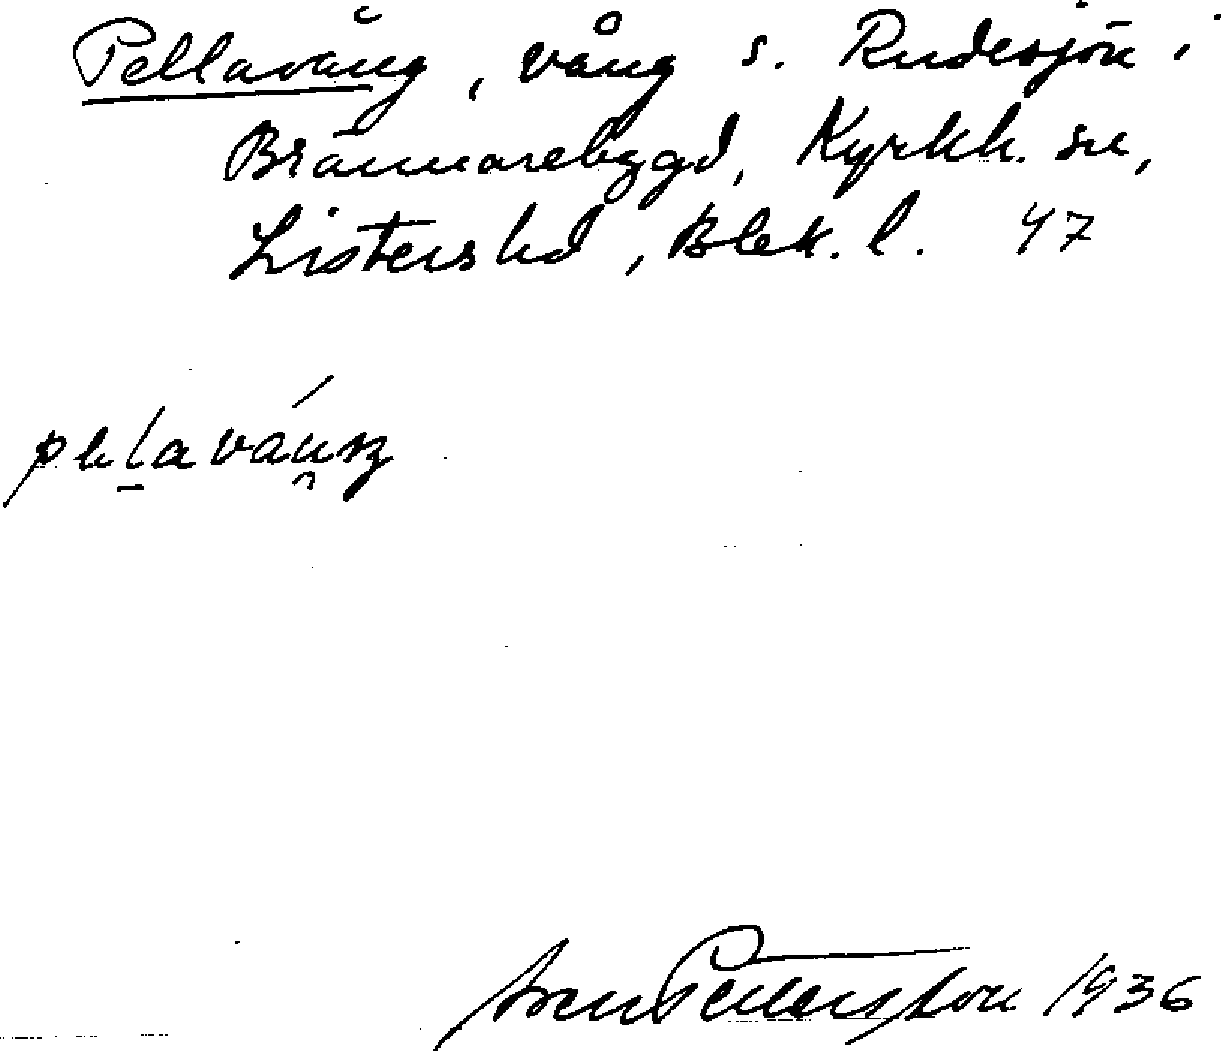 Pellavång, vång s. Rudesjön i
Brännarebygd, Kyrkh. sn,
Listers hd, Blek. l. 47
Sven Pettersson 1936